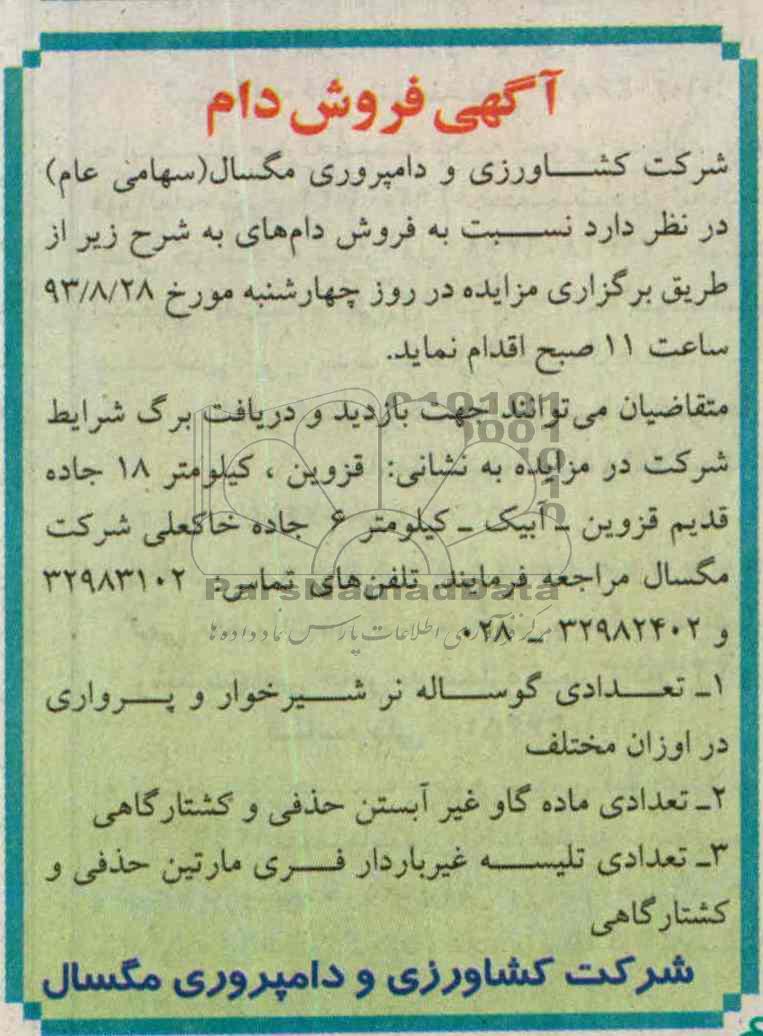 آگهی فروش دام
شرکت کشاورزی و دامپروری مگسال(سهامی عام)
در نظر دارد نسبت به فروش دام‌های به شرح زیر از
طریق برگزاری مزایده در روز چهارشنبه مورخ ۹۳/۸/۲۸
ساعت ۱۱ صبح اقدام نماید.
متقاضیان می‌توانند جهت بازدید و دریافت برگ شرایط
شرکت در مزایده به نشانی: قزوین ، کیلومتر ۱۸ جاده
قدیم قزوین ـ آبیک ـ کیلومتر ۶ جاده خاکعلی شرکت
مگسال مراجعه فرمایند. تلفن‌های تماس: ۳۲۹۸۳۱۰۲
ParsNamadData
و ۳۲۹۸۲۴۰۲ ـ ۰۲۸
مرکز فرآوری اطلاعات پارس نماد داده ها
۱ـ تعدادی گوساله نر شیرخوار و پرواری
در اوزان مختلف
۲ـ تعدادی ماده گاو غیر آبستن حذفی و کشتارگاهی
۳ـ تعدادی تلیسه غیرباردار فری مارتین حذفی و
کشتارگاهی
شرکت کشاورزی و دامپروری مگسال